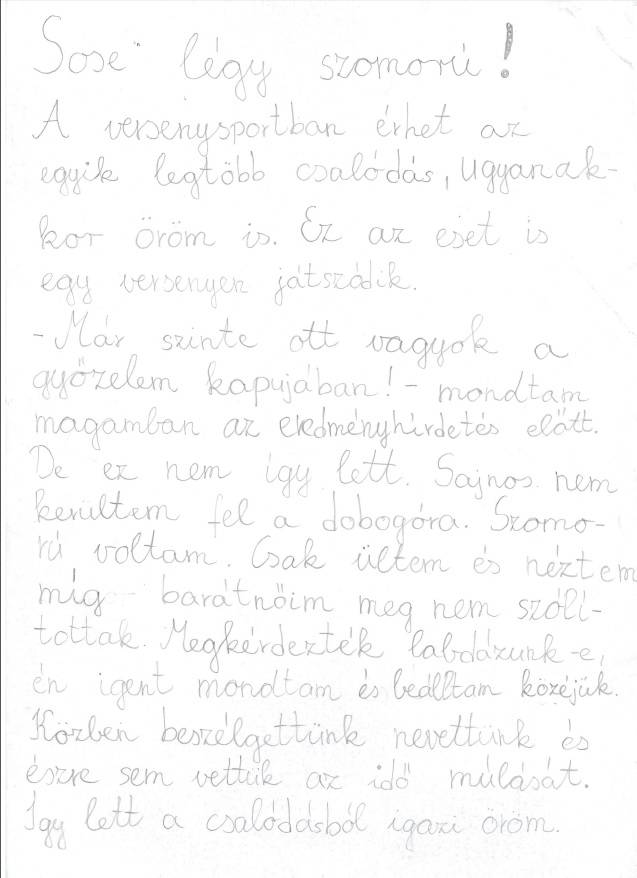 Sose légy szomorú!
A versenysportban érhet az
egyik legtöbb csalódás, ugyanak-
kor öröm is. Ez az eset is
egy versenyen játszódik.
- Már szinte ott vagyok a
győzelem kapujában! - mondtam
magamban az eredményhirdetés előtt.
De ez nem így lett. Sajnos nem
kerültem fel a dobogóra. Szomo-
rú voltam. Csak ültem és néztem
míg barátnőim meg nem szólí-
tottak. Megkérdezték labdázunk-e,
én igent mondtam és beálltam közéjük.
Közben beszélgettünk nevettünk és
észre sem vettük az idő múlását.
Így lett a csalódásból igazi öröm.